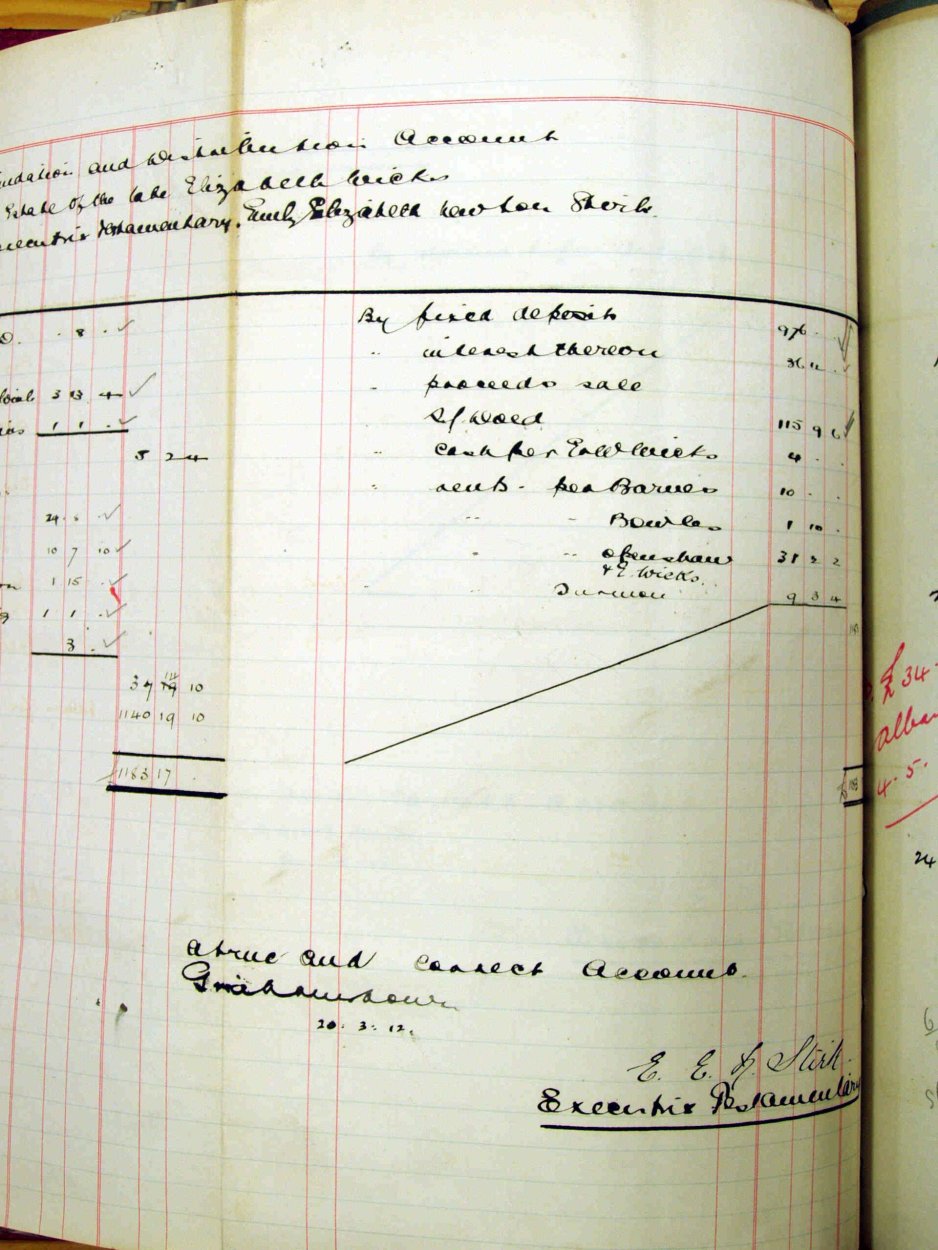 idation and Distribution Account
Estate of the late Elizabeth Wicks
xecutrix Testamentary. Emily Elizabeth Newton Stirk.
D. . 8 .
3 13 4
1 1 .
5 2 4
24 . 8 .
10 7 10
1 15 .
1 1 .
3 .
37 14 10
1140 19 10
£1183 17 .
By fixed deposit 976 . .
" interest thereon 36 11 .
" proceeds sale
of Wood 115 9 6
" cash per Wicks 4 . .
" rent - per Barnes 10 . .
" " Bowles 1 10 .
" " Openshaw 31 3 2
& E. Wicks.
" 9 3 4
A true and correct Account.
Grahamstown
20. 3. 12.
E. E. N. Stirk.
Executrix Testamentary
£34.
4. 5.
24